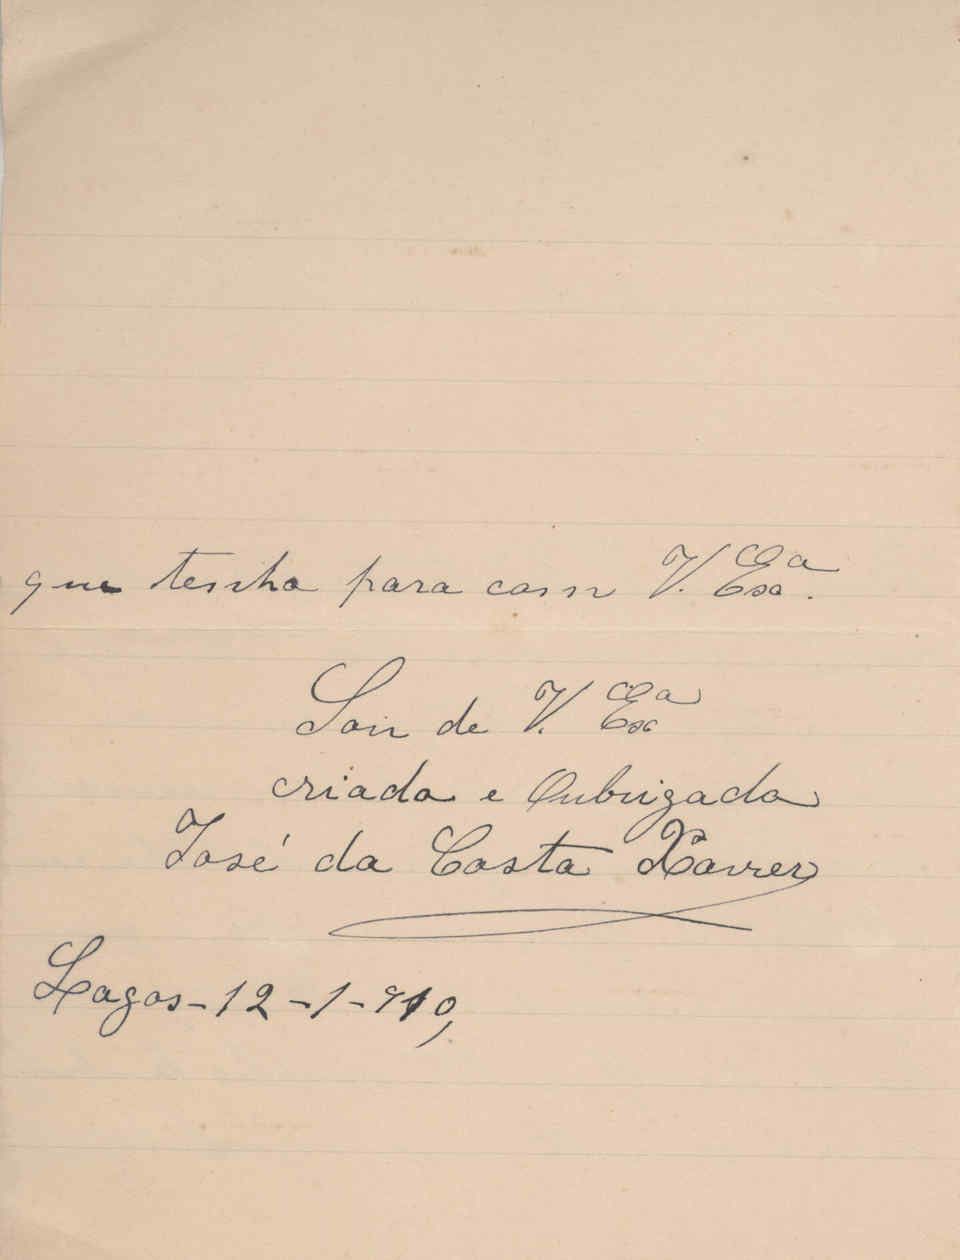 que tenho para com V. Exª.
Sou de V. Exª
criado e Oubrigado
José da Costa Xavier
Lagos - 12 - 1 - 910,